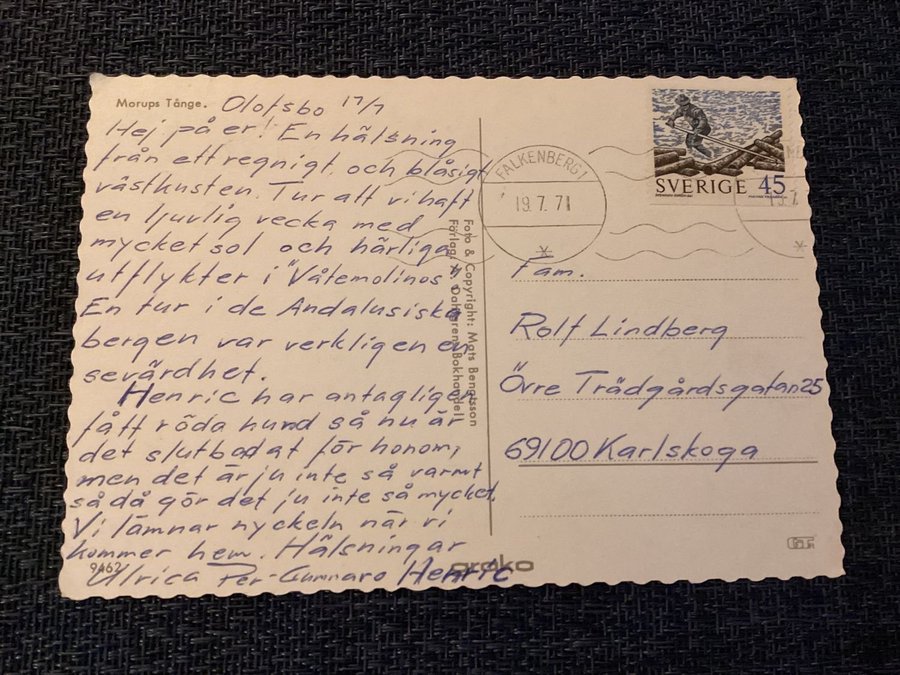 Morups Tånge. Olofsbo 17/7
Hej på er! En hälsning
från ett regnigt och blåsigt
västkusten. Tur att vi haft
en ljuvlig vecka med
mycket sol och härliga
utflykter i "Våtemolinos".
En tur i de Andalusiska
bergen var verkligen en
sevärdhet.
Henric har antagligen
fått röda hund så nu är
det slutbadat för honom,
men det är ju inte så varmt
så då gör det ju inte så mycket.
Vi lämnar nyckeln när vi
kommer hem. Hälsningar
Ulrica Per-Gunnar o Henric
9462
Foto & Copyright: Mats Bengtsson
Förlag: A. Dahlgrens Bokhandel
grako
SVERIGE 45
FALKENBERG 1
19.7.71
Fam.
Rolf Lindberg
Övre Trädgårdsgatan 25
69100 Karlskoga